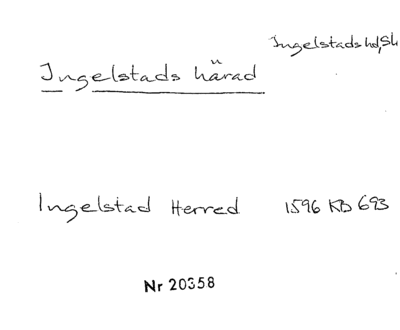 Ingelstads hd, Sk
Ingelstads härad
Ingelstad Herred 1596 KB 693
Nr 20358